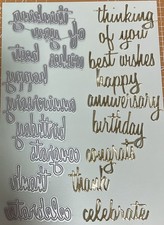 thinking
of you
best wishes
happy
anniversary
birthday
congrats
thank
celebrate